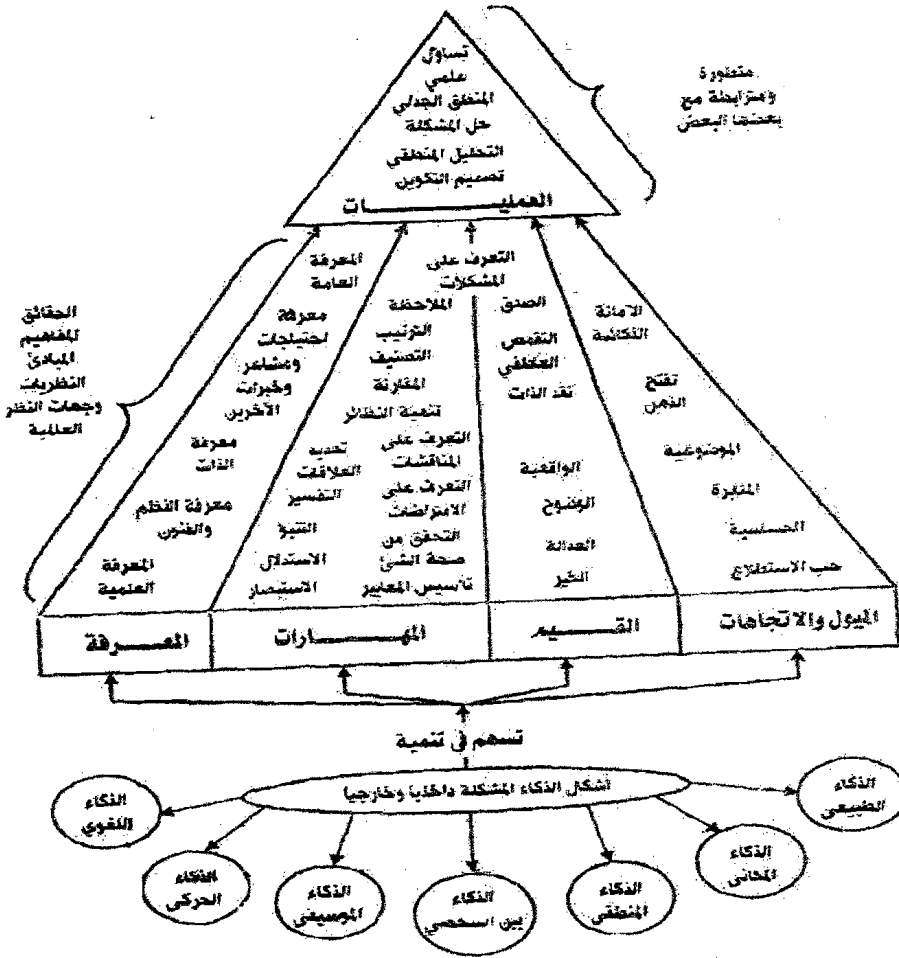 تساؤل
علمي
المنطق الجدلي
حل المشكلة
التحليل المنطقي
تصميم التكوين
العمليــــــــات
متطورة
ومترابطة مع
بعضها البعض
الحقائق
المفاهيم
المبادئ
النظريات
وجهات النظر
العلمية
المعرفة
العامة
معرفة
احتياجات
ومشاعر
وخبرات
الآخرين
معرفة
الذات
معرفة النظم
والفنون
المعرفة
العلمية
التعرف على
المشكلات
الملاحظة
الترتيب
التصنيف
المقارنة
تنمية النظائر
التعرف على
المناقشات
التعرف على
الافتراضات
التحقق من
صحة الشئ
تأسيس المعايير
تحديد
العلاقات
التفسير
التنبؤ
الاستدلال
الاستبصار
الصدق
التقمص
العطفي
نقد الذات
الواقعية
الوضوح
العدالة
الخير
الامانة
تفتح
الذهن
الموضوعية
المثابرة
الحساسية
حب الاستطلاع
المعـــرفة
المهـــــارات
القـــــيم
الميول والاتجاهات
تسهم في تنمية
أشكال الذكاء المشكلة داخليا وخارجيا
الذكاء
اللغوي
الذكاء
الحركى
الذكاء
الموسيقى
الذكاء
بين الشخصي
الذكاء
المنطقى
الذكاء
المكانى
الذكاء
الطبيعى